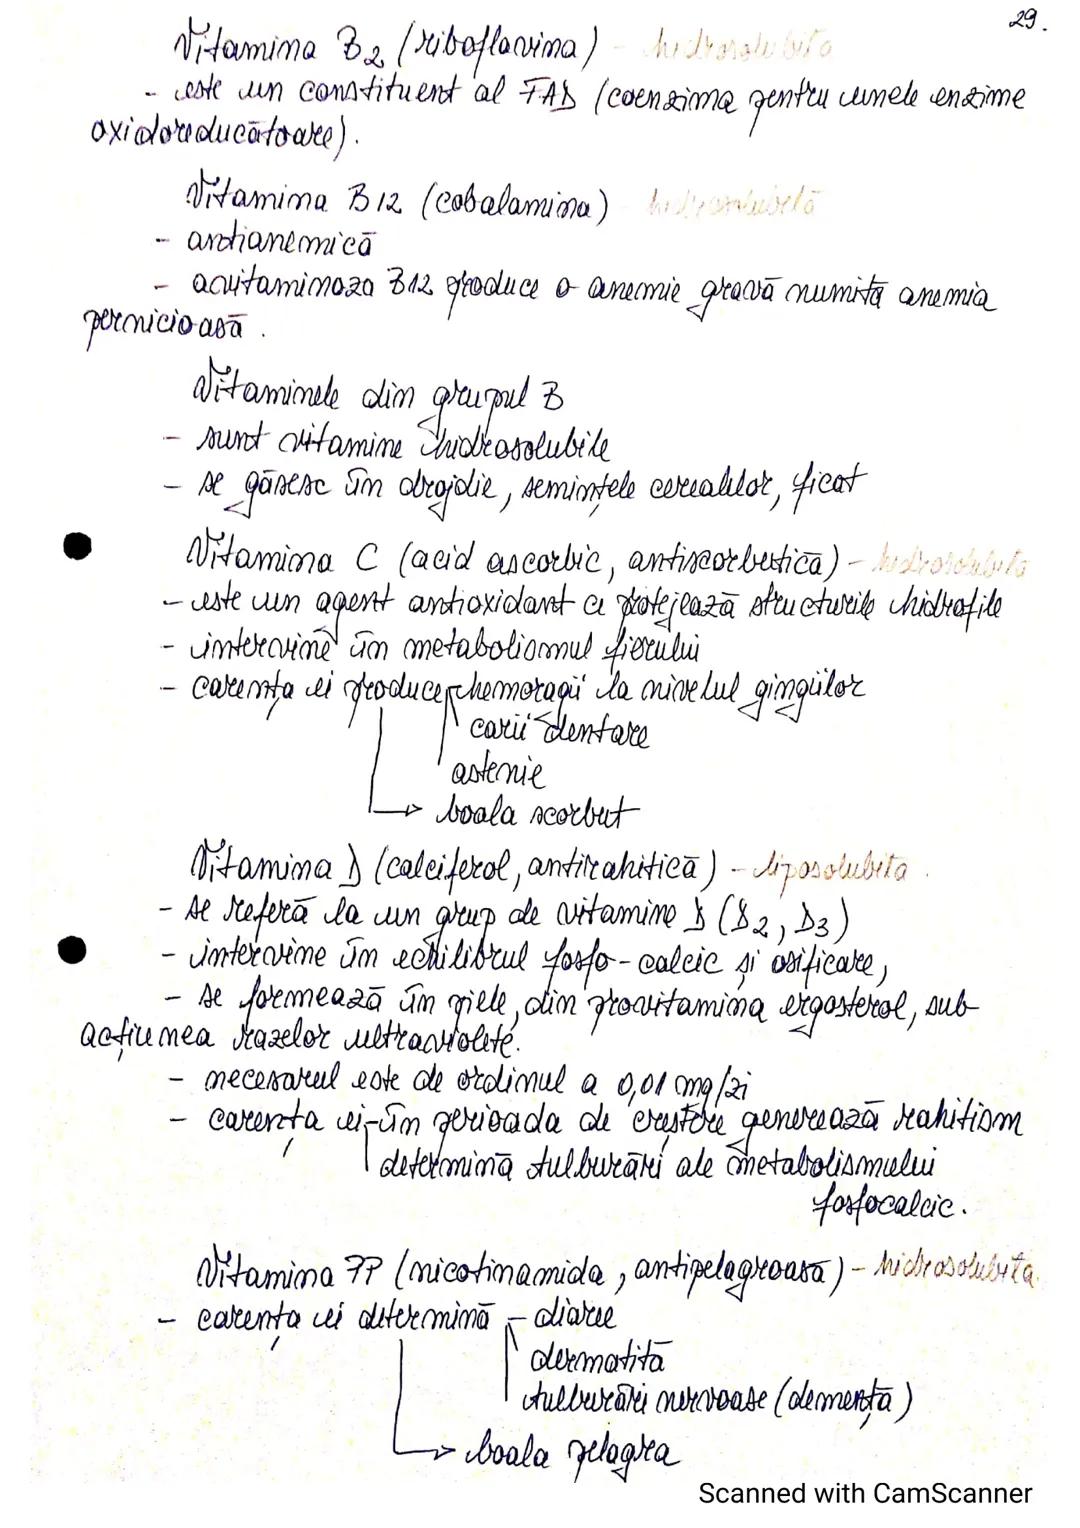 29.
Vitamina B2 (riboflavina) - hidrosolubilă
- este un constituent al FAD (coenzima pentru unele enzime
oxidoreducătoare).
Vitamina B12 (cobalamina) - hidrosolubilă
- antianemică
- avitaminoza B12 produce o anemie gravă numită anemia
pernicioasă.
Vitaminele din grupul B
- sunt vitamine hidrosolubile
- se găsesc în drojdie, semințele cerealelor, ficat
Vitamina C (acid ascorbic, antiscorbutică) - hidrosolubilă
- este un agent antioxidant ce protejează structurile hidrofile
- intervine în metabolismul fierului
- carența ei produce hemoragii la nivelul gingiilor
carii dentare
astenie
→ boala scorbut
Vitamina D (calciferol, antirahitică) - liposolubilă.
- se referă la un grup de vitamine D (D2, D3)
- intervine în echilibrul fosfo-calcic și osificare,
- se formează în piele, din provitamina ergosterol, sub
acțiunea razelor ultraviolete.
- necesarul este de ordinul a 0,01 mg/zi
- carența ei - în perioada de creștere generează rahitism
determină tulburări ale metabolismului
fosfocalcic.
Vitamina PP (nicotinamida, antipelagroasă) - hidrosolubilă.
- carența ei determină - diaree
dermatită
tulburări nervoase (demență)
→ boala pelagra
Scanned with CamScanner